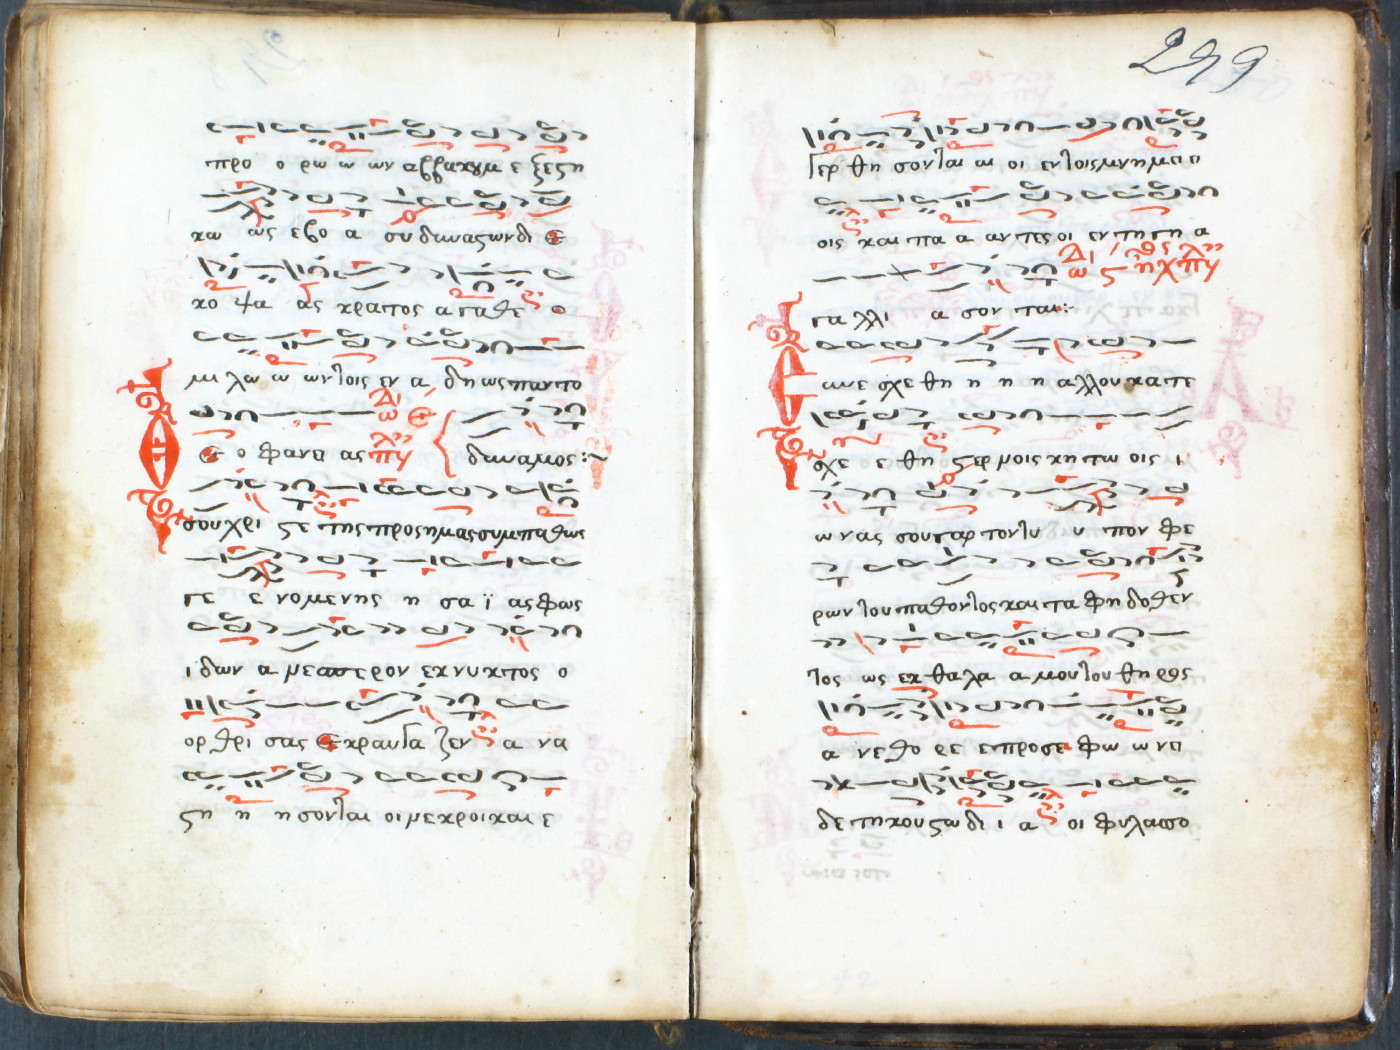 προ ο ρω ω ων αββακουμ ε ξεστη
κω ως εβο α συ δυναστων δι ε
κο ψα ας κρατος αγαθε ο
μι λω ω ων τοις εν α δη ως παντο
ε ο φανει ας
δυναμος :~
σου χρι στε της προς ημας συμπαθως
γε ε νομενης η σα ϊ ας φως
ι δων α νεσπερον εκ νυκτος ο
ορ θρι σας εκραυγα ζεν α να
στη η η σονται οι νεκροι και ε
299
γερ θη σονται αι οι εν τοις μνημειοι
οις και πα α αν τες οι εν τη γη α
γα λλι α σον ται :
συνε σχε θη η η η αλλ ου κατε
σχε ε θη στερνοις κητω οις ι
ω νας σου γαρ τον τυ υ πον φε
ρων του παθοντος και ταφη δοθεν
τος ως εκ θαλα α μου του θηρος
α νεθο ρε ε προσε φω ω νει
δε τη κουστω δι ι α οι φυλασσο